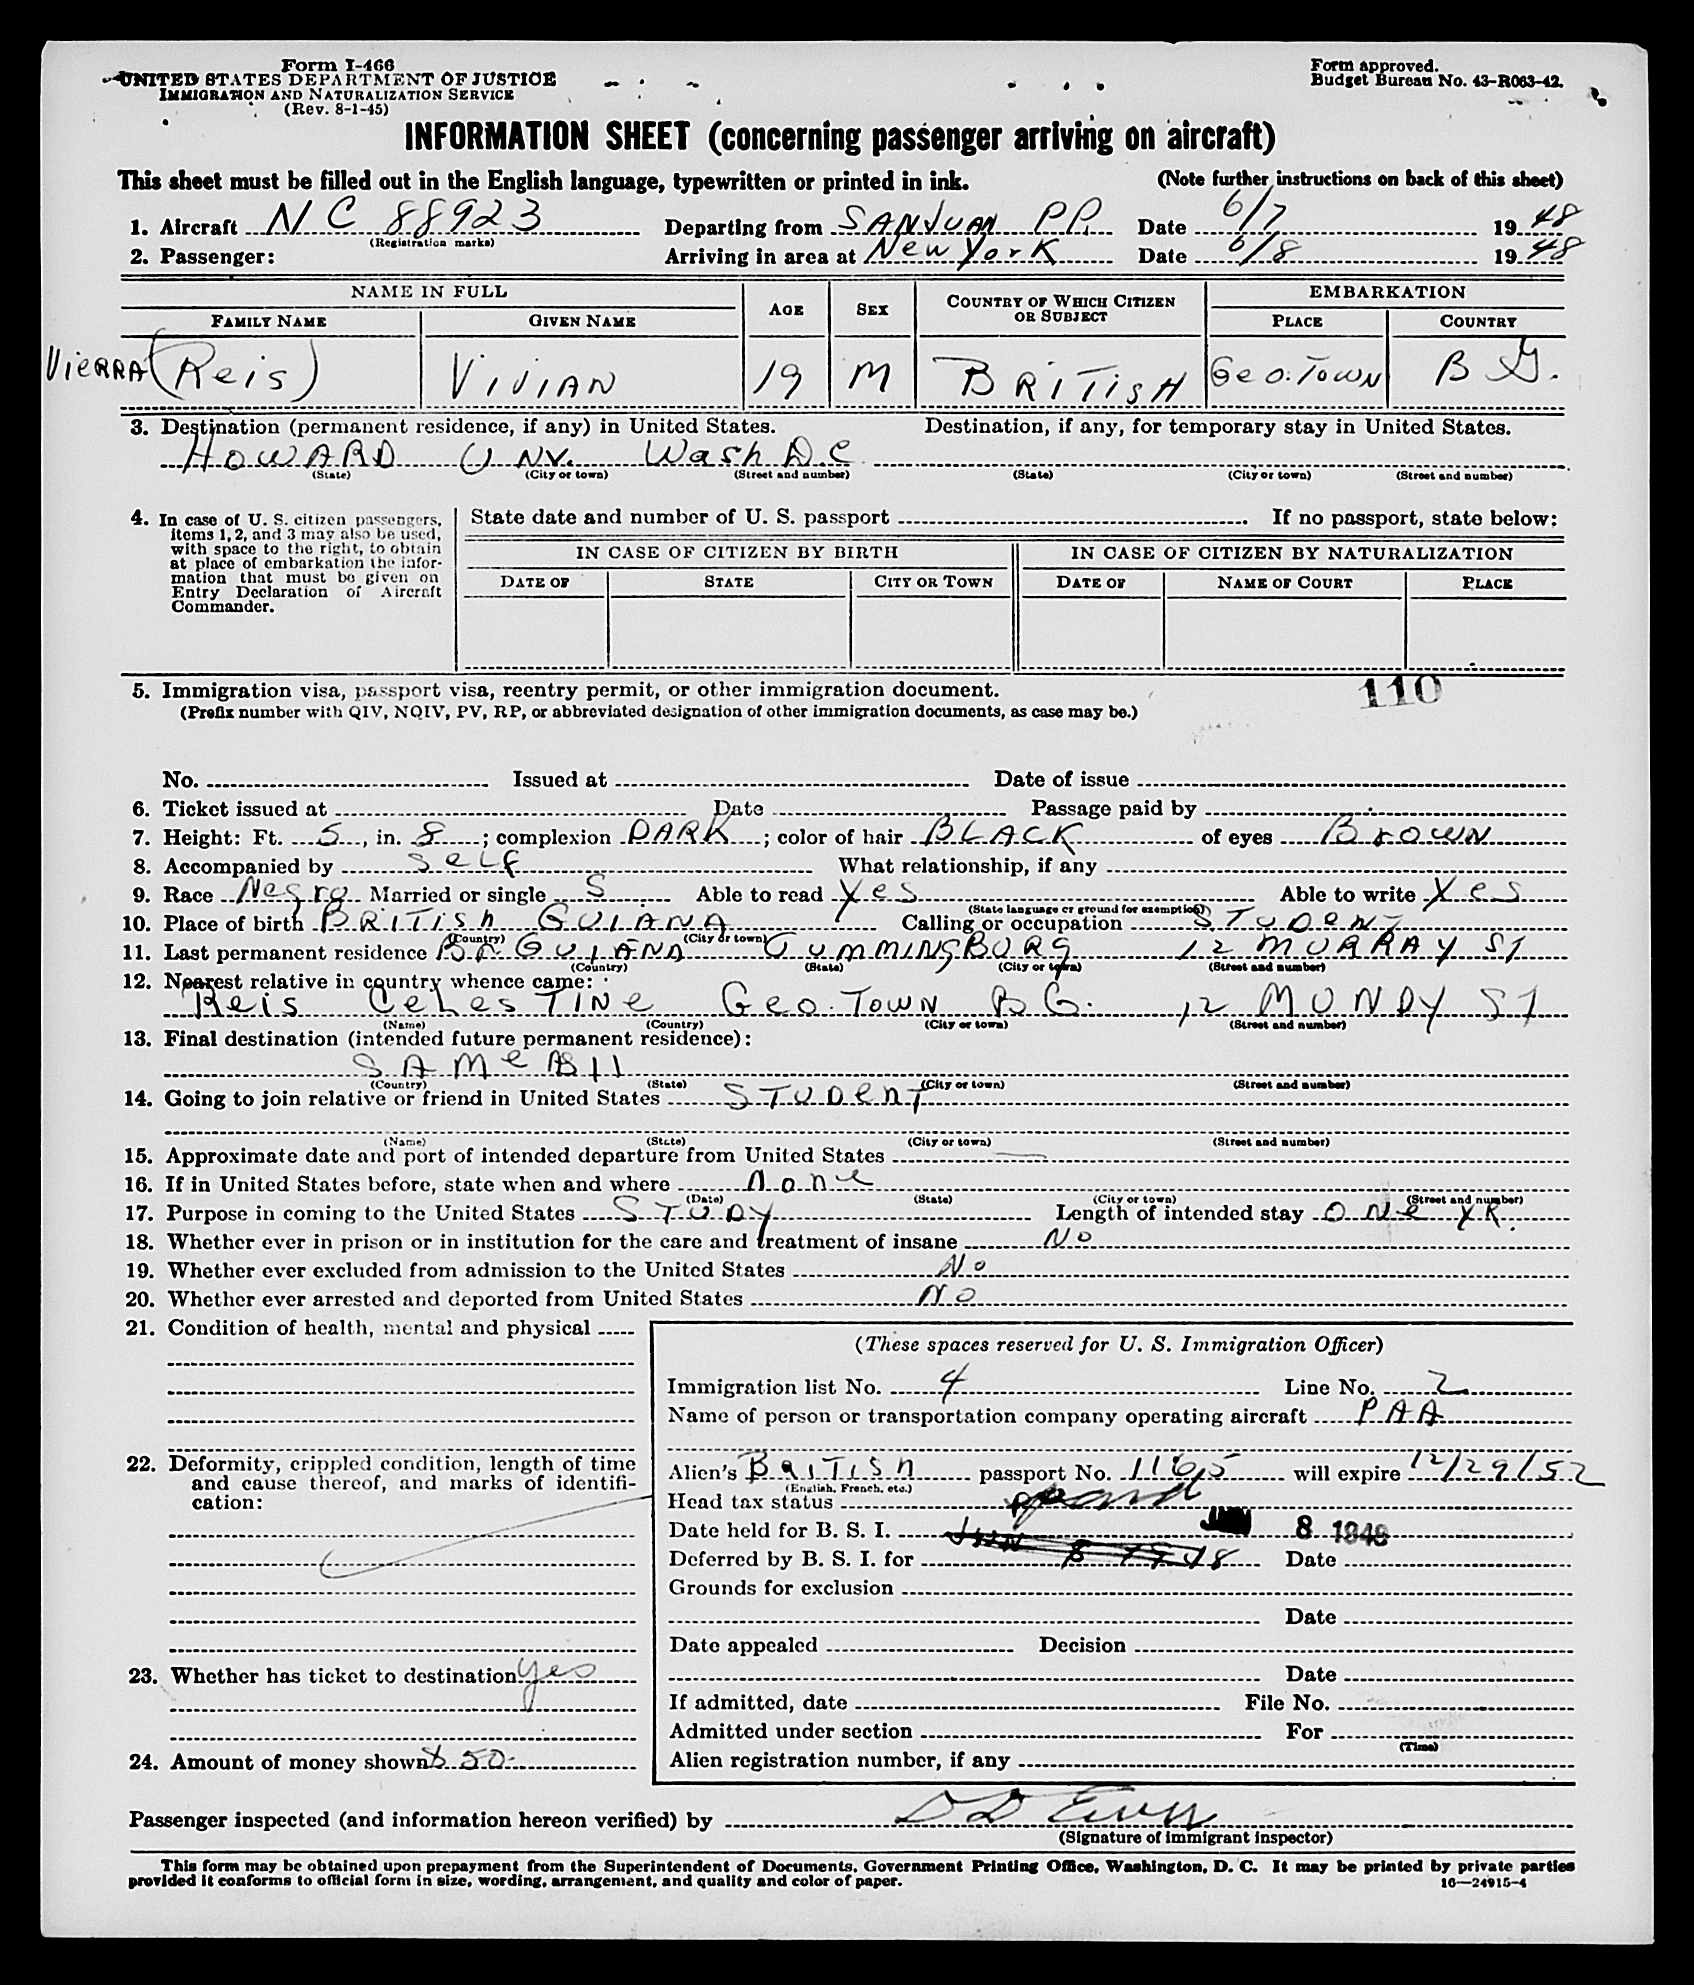 Form I-466
UNITED STATES DEPARTMENT OF JUSTICE
IMMIGRATION AND NATURALIZATION SERVICE
(Rev. 8-1-45)
Form approved.
Budget Bureau No. 43-R063-42.
INFORMATION SHEET (concerning passenger arriving on aircraft)
This sheet must be filled out in the English language, typewritten or printed in ink. (Note further instructions on back of this sheet)
1. Aircraft NC 88923 Departing from SANJUAN P.R. Date 6/7 1948
(Registration marks)
2. Passenger: Arriving in area at New York Date 6/8 1948
NAME IN FULL AGE SEX COUNTRY OF WHICH CITIZEN OR SUBJECT EMBARKATION
FAMILY NAME GIVEN NAME PLACE COUNTRY
VieRRA (Reis) ViViAN 19 M BRiTisH Geo.Town B G.
3. Destination (permanent residence, if any) in United States. Destination, if any, for temporary stay in United States.
HOWARD UNV. Wash D.C
(State) (City or town) (Street and number) (State) (City or town) (Street and number)
4. In case of U. S. citizen passengers, items 1, 2, and 3 may also be used, with space to the right, to obtain at place of embarkation the information that must be given on Entry Declaration of Aircraft Commander.
State date and number of U. S. passport . If no passport, state below:
IN CASE OF CITIZEN BY BIRTH IN CASE OF CITIZEN BY NATURALIZATION
DATE OF STATE CITY OR TOWN DATE OF NAME OF COURT PLACE
5. Immigration visa, passport visa, reentry permit, or other immigration document. 110
(Prefix number with QIV, NQIV, PV, RP, or abbreviated designation of other immigration documents, as case may be.)
No. Issued at Date of issue
6. Ticket issued at Date Passage paid by
7. Height: Ft. 5, in. 8; complexion DARK; color of hair BLACK of eyes BroWN
8. Accompanied by self What relationship, if any
9. Race Negro Married or single S Able to read Yes Able to write Yes
(State language or ground for exemption)
10. Place of birth BRiTish GUIANA Calling or occupation STUDeNT
(Country) (City or town)
11. Last permanent residence BR GUIANA CUMMINgBURg 12 MURRAY ST
(Country) (State) (City or town) (Street and number)
12. Nearest relative in country whence came:
Reis CeLesTINe Geo.TOWN BG. 12 MUNDY ST
(Name) (Country) (City or town) (Street and number)
13. Final destination (intended future permanent residence):
SAMe AS 11
(Country) (State) (City or town) (Street and number)
14. Going to join relative or friend in United States STUDenT
(Name) (State) (City or town) (Street and number)
15. Approximate date and port of intended departure from United States
16. If in United States before, state when and where None
(Date) (State) (City or town) (Street and number)
17. Purpose in coming to the United States STUDY Length of intended stay ONe YR.
18. Whether ever in prison or in institution for the care and treatment of insane No
19. Whether ever excluded from admission to the United States No
20. Whether ever arrested and deported from United States NO
21. Condition of health, mental and physical
22. Deformity, crippled condition, length of time and cause thereof, and marks of identification:
23. Whether has ticket to destination yes
24. Amount of money shown $50-
(These spaces reserved for U. S. Immigration Officer)
Immigration list No. 4 Line No. 2
Name of person or transportation company operating aircraft PAA
Alien's BRITISH passport No. 1165 will expire 12/29/52
(English, French, etc.)
Head tax status
Date held for B. S. I. JUN 8 1948
Deferred by B. S. I. for JUN 8 1948 Date
Grounds for exclusion
Date
Date appealed Decision
Date
If admitted, date File No.
Admitted under section For
(Time)
Alien registration number, if any
Passenger inspected (and information hereon verified) by
(Signature of immigrant inspector)
This form may be obtained upon prepayment from the Superintendent of Documents, Government Printing Office, Washington, D. C. It may be printed by private parties
provided it conforms to official form in size, wording, arrangement, and quality and color of paper. 16—24915-4